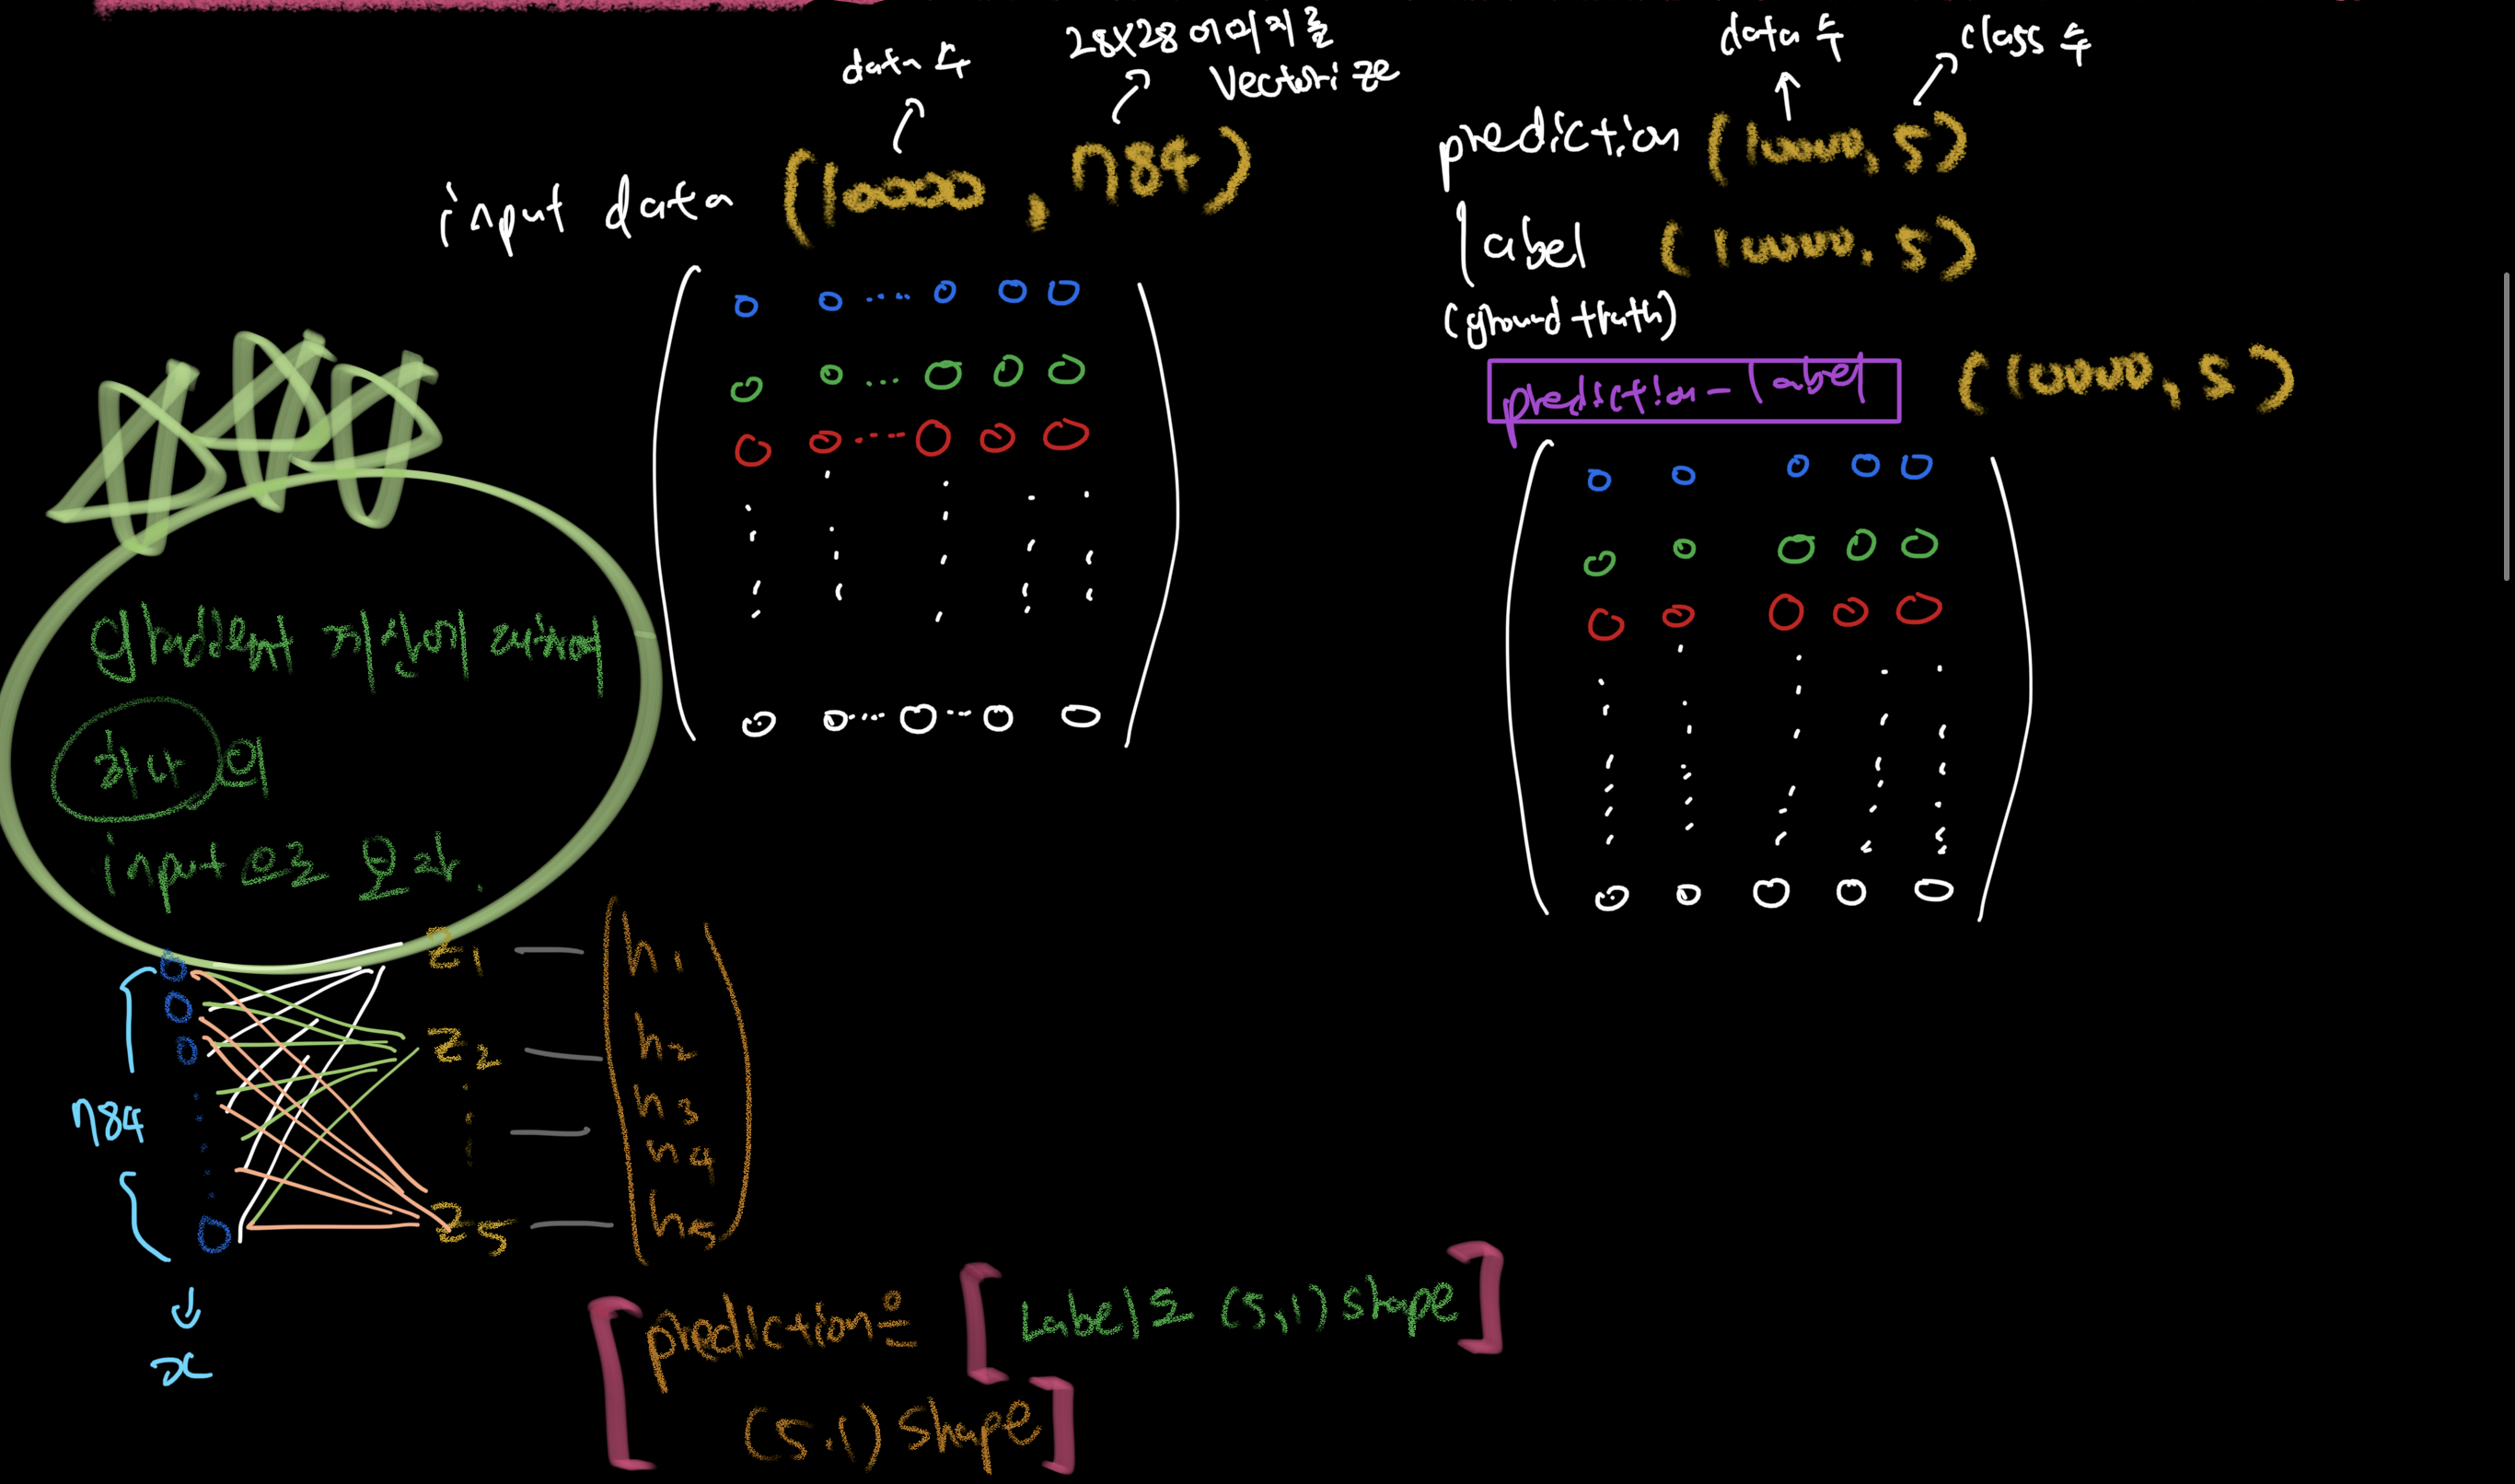 data 수
28X28 이미지를
Vectorize
input data (10000, 784)
data 수
class 수
prediction (10000, 5)
label (10000, 5)
(ground truth)
prediction - label (10000, 5)
gradient 계산에
하나의
input으로 오자.
784
x
z1
z2
z5
h1
h2
h3
h4
h5
prediction은
(5,1) shape
Label도 (5,1) shape